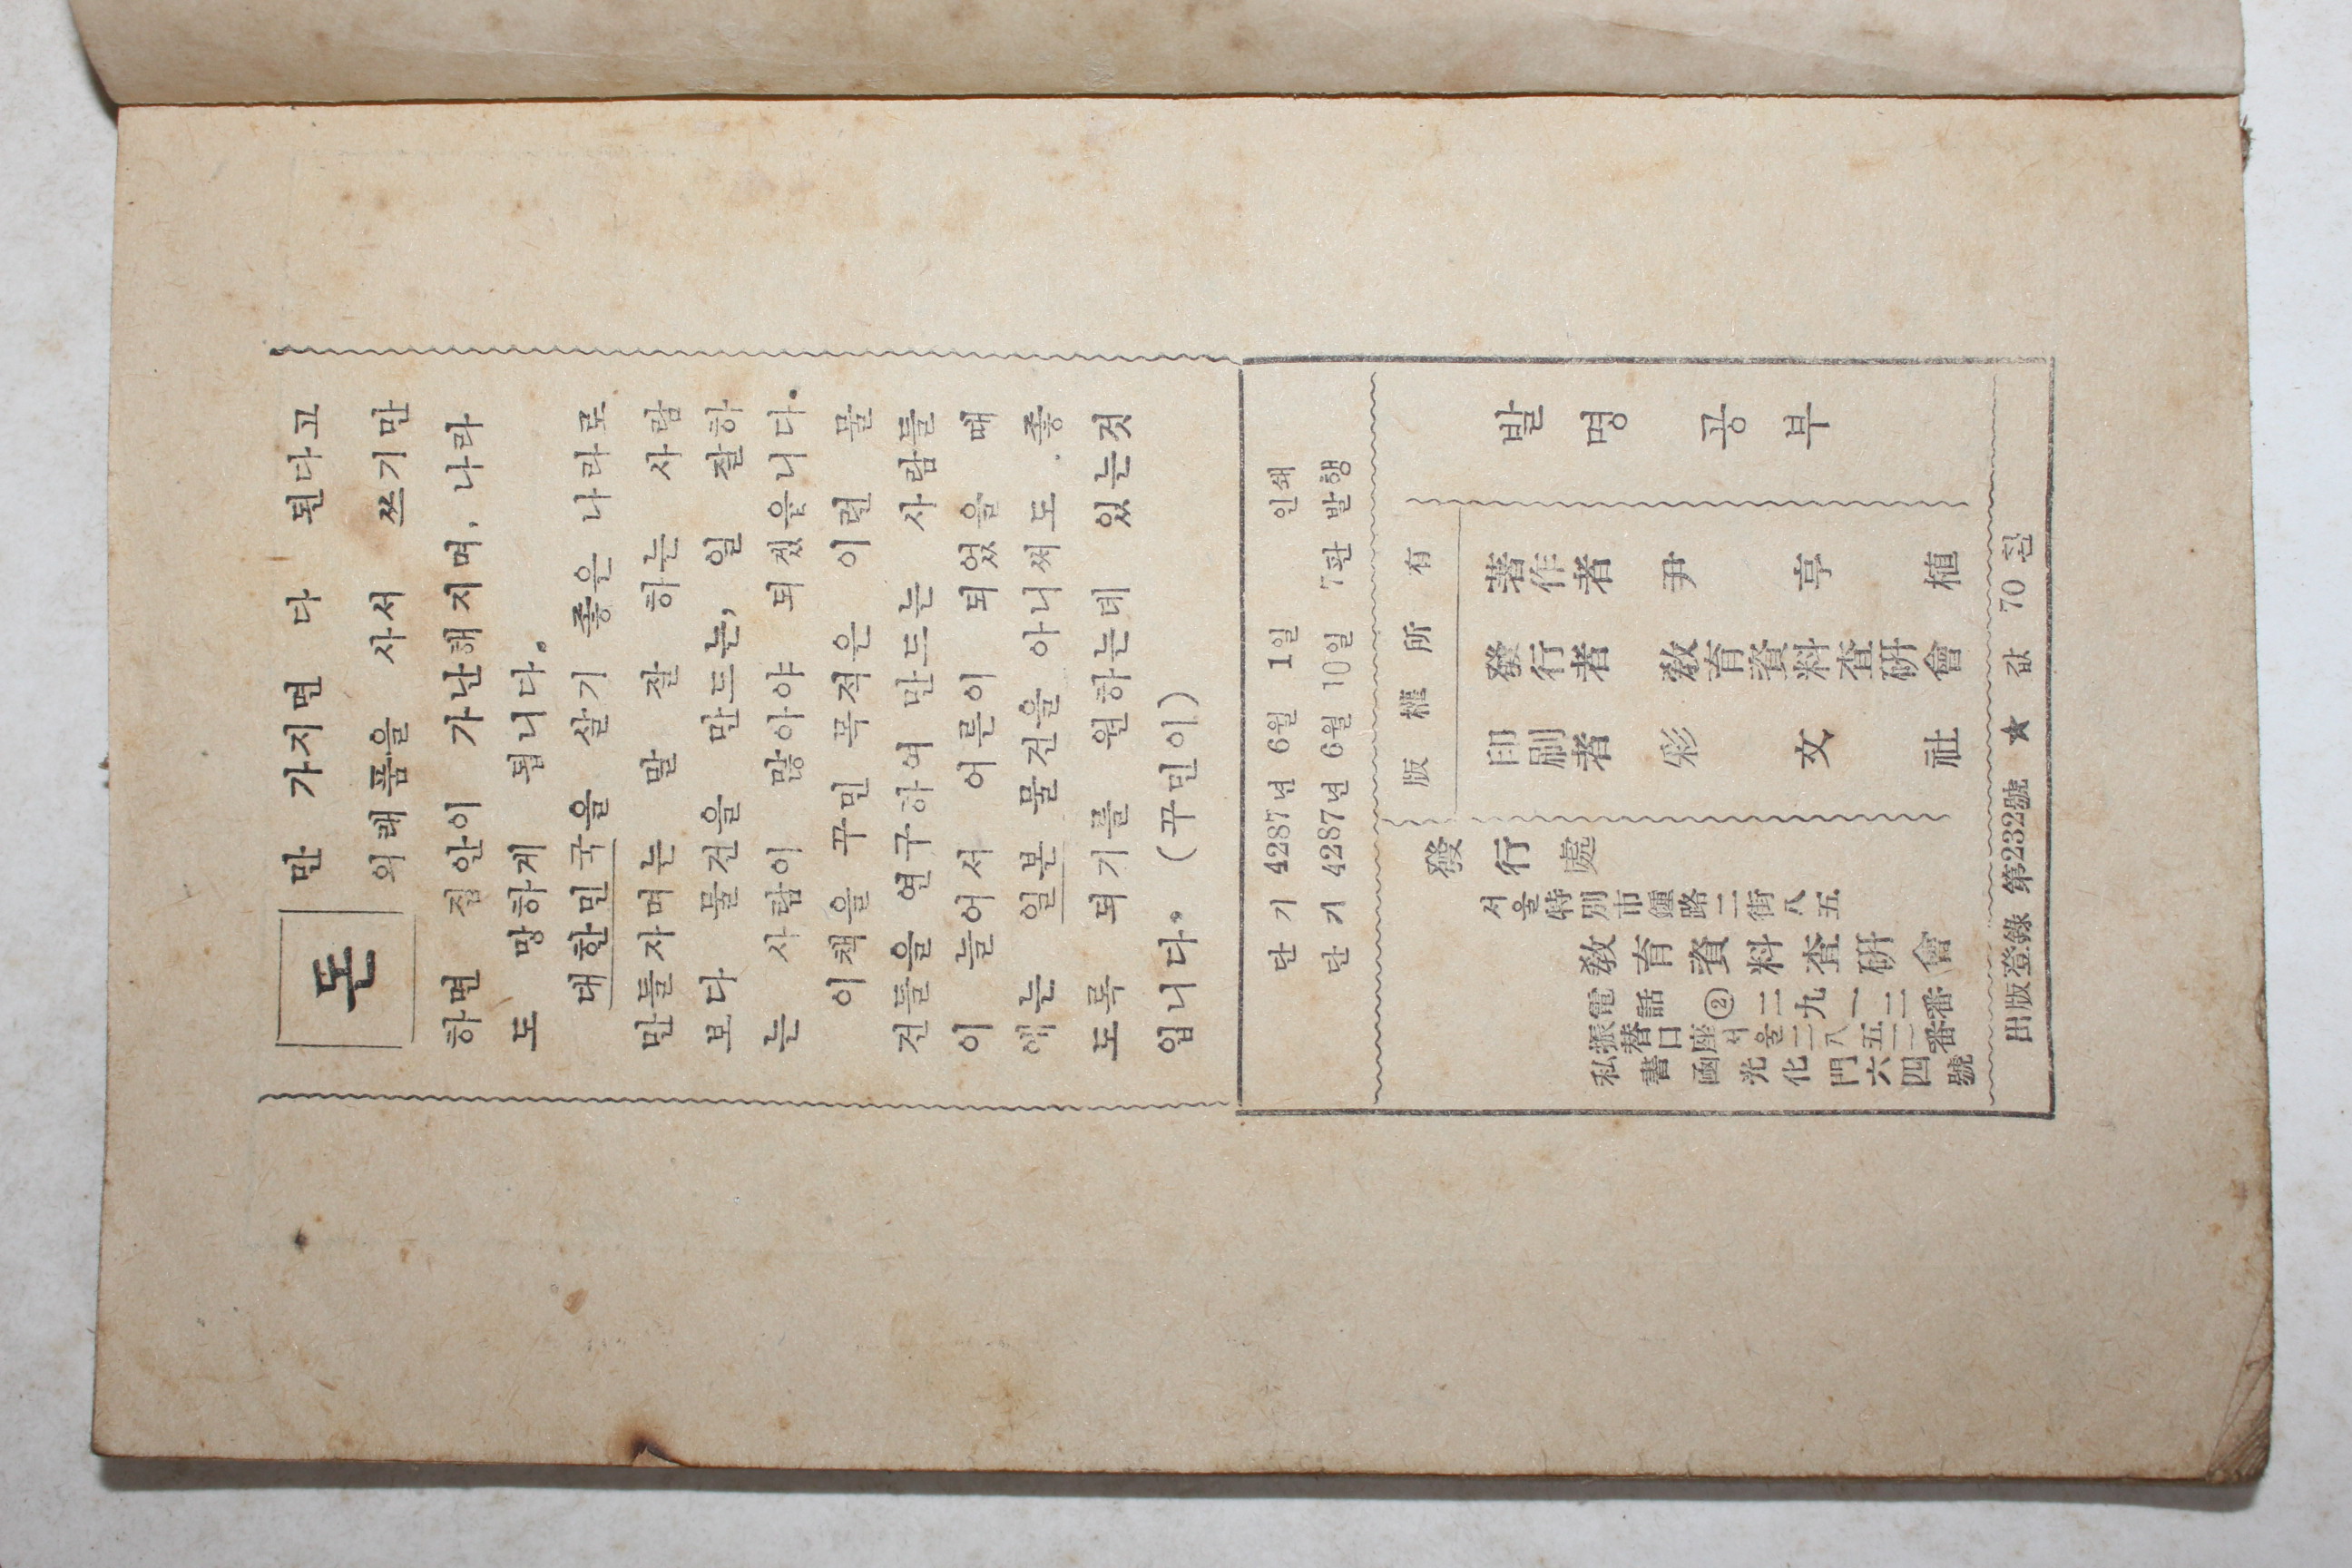 돈 만 가지면 다 된다고
외래품을 사서 쓰기만
하면 집안이 가난해지며, 나라
도 망하게 됩니다.
대한민국을 살기 좋은 나라로
만들자며는 말 잘 하는 사람
보다 물건을 만드는, 일 잘하
는 사람이 많아야 되겠읍니다.
이책을 꾸민 목적은 이런 물
건들을 연구하여 만드는 사람들
이 늘어서 어른이 되었을 때
에는 일본 물건을 아니써도 좋
도록 되기를 원하는데 있는것
입니다. (꾸민이)
단 기 4287년 6월 1일 인쇄
단 기 4287년 6월 10일 7판 발행
版權所有
발명공부
著作者 尹亨植
發行者 敎育資料査硏會
印刷者 彩文社
發行處
서울特別市鍾路二街八五
敎育資料査硏會
電話②二九一二番
振替口座서울二八五二番
私書函光化門六四號
出版登錄 第232號 ★ 값 70환